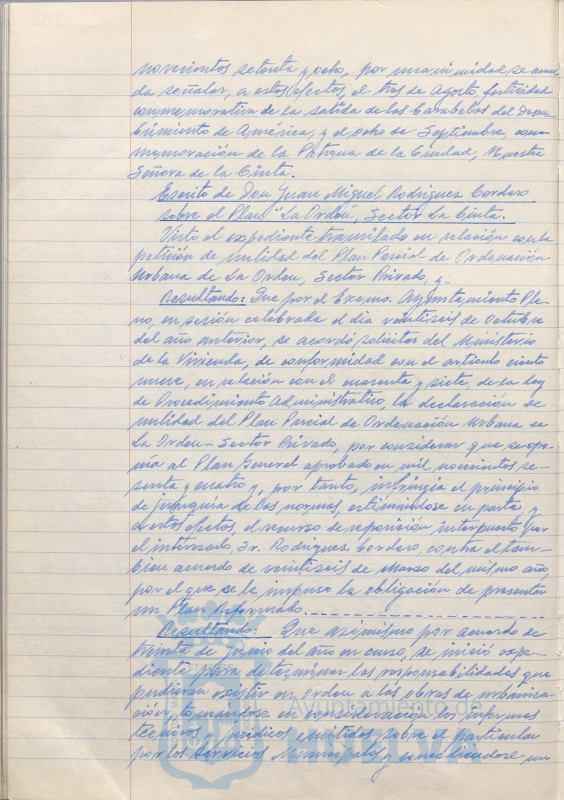 novecientos setenta y ocho, por unanimidad, se acuer-
da señalar, a estos efectos, el tres de Agosto, festividad
conmemorativa de la salida de las Carabelas del Descu-
brimiento de América, y el ocho de Septiembre, con-
memoración de la Patrona de la Ciudad, Nuestra
Señora de la Cinta.
Escrito de Don Juan Miguel Rodriguez Cordero
sobre el Plan "La Orden", Sector La Cinta.
Visto el expediente tramitado en relación con la
petición de nulidad del Plan Parcial de Ordenación
Urbana de La Orden, Sector Privado, y-
Resultando: Que por el Excmo. Ayuntamiento Ple-
no, en sesión celebrada el dia veintiseis de Octubre
del año anterior, se acordó solicitar del Ministerio
de la Vivienda, de conformidad con el artículo ciento
nueve, en relación con el cuarenta y siete, de la Ley
de Procedimiento Administrativo, la declaración de
nulidad del Plan Parcial de Ordenación Urbana de
La Orden - Sector Privado, por considerar que se opo-
nía al Plan General aprobado en mil novecientos se-
senta y cuatro y, por tanto, infringía el principio
de jerarquía de las normas, estimándose en parte, y
a estos efectos, el recurso de reposición interpuesto por
el interesado, Sr. Rodriguez Cordero, contra el tam-
bien acuerdo de veintiseis de Marzo del mismo año,
por el que se le impuso la obligación de presentar
un Plan Reformado.
Resultando: Que asimismo por acuerdo de
treinta de Junio del año en curso, se inició expe-
diente para determinar las responsabilidades que
pudieran existir en orden a las obras de urbaniza-
ción, tomándose en consideración los informes
técnicos y jurídicos emitidos sobre el particular
por los Servicios Municipales y concediéndose un
Ayuntamiento de